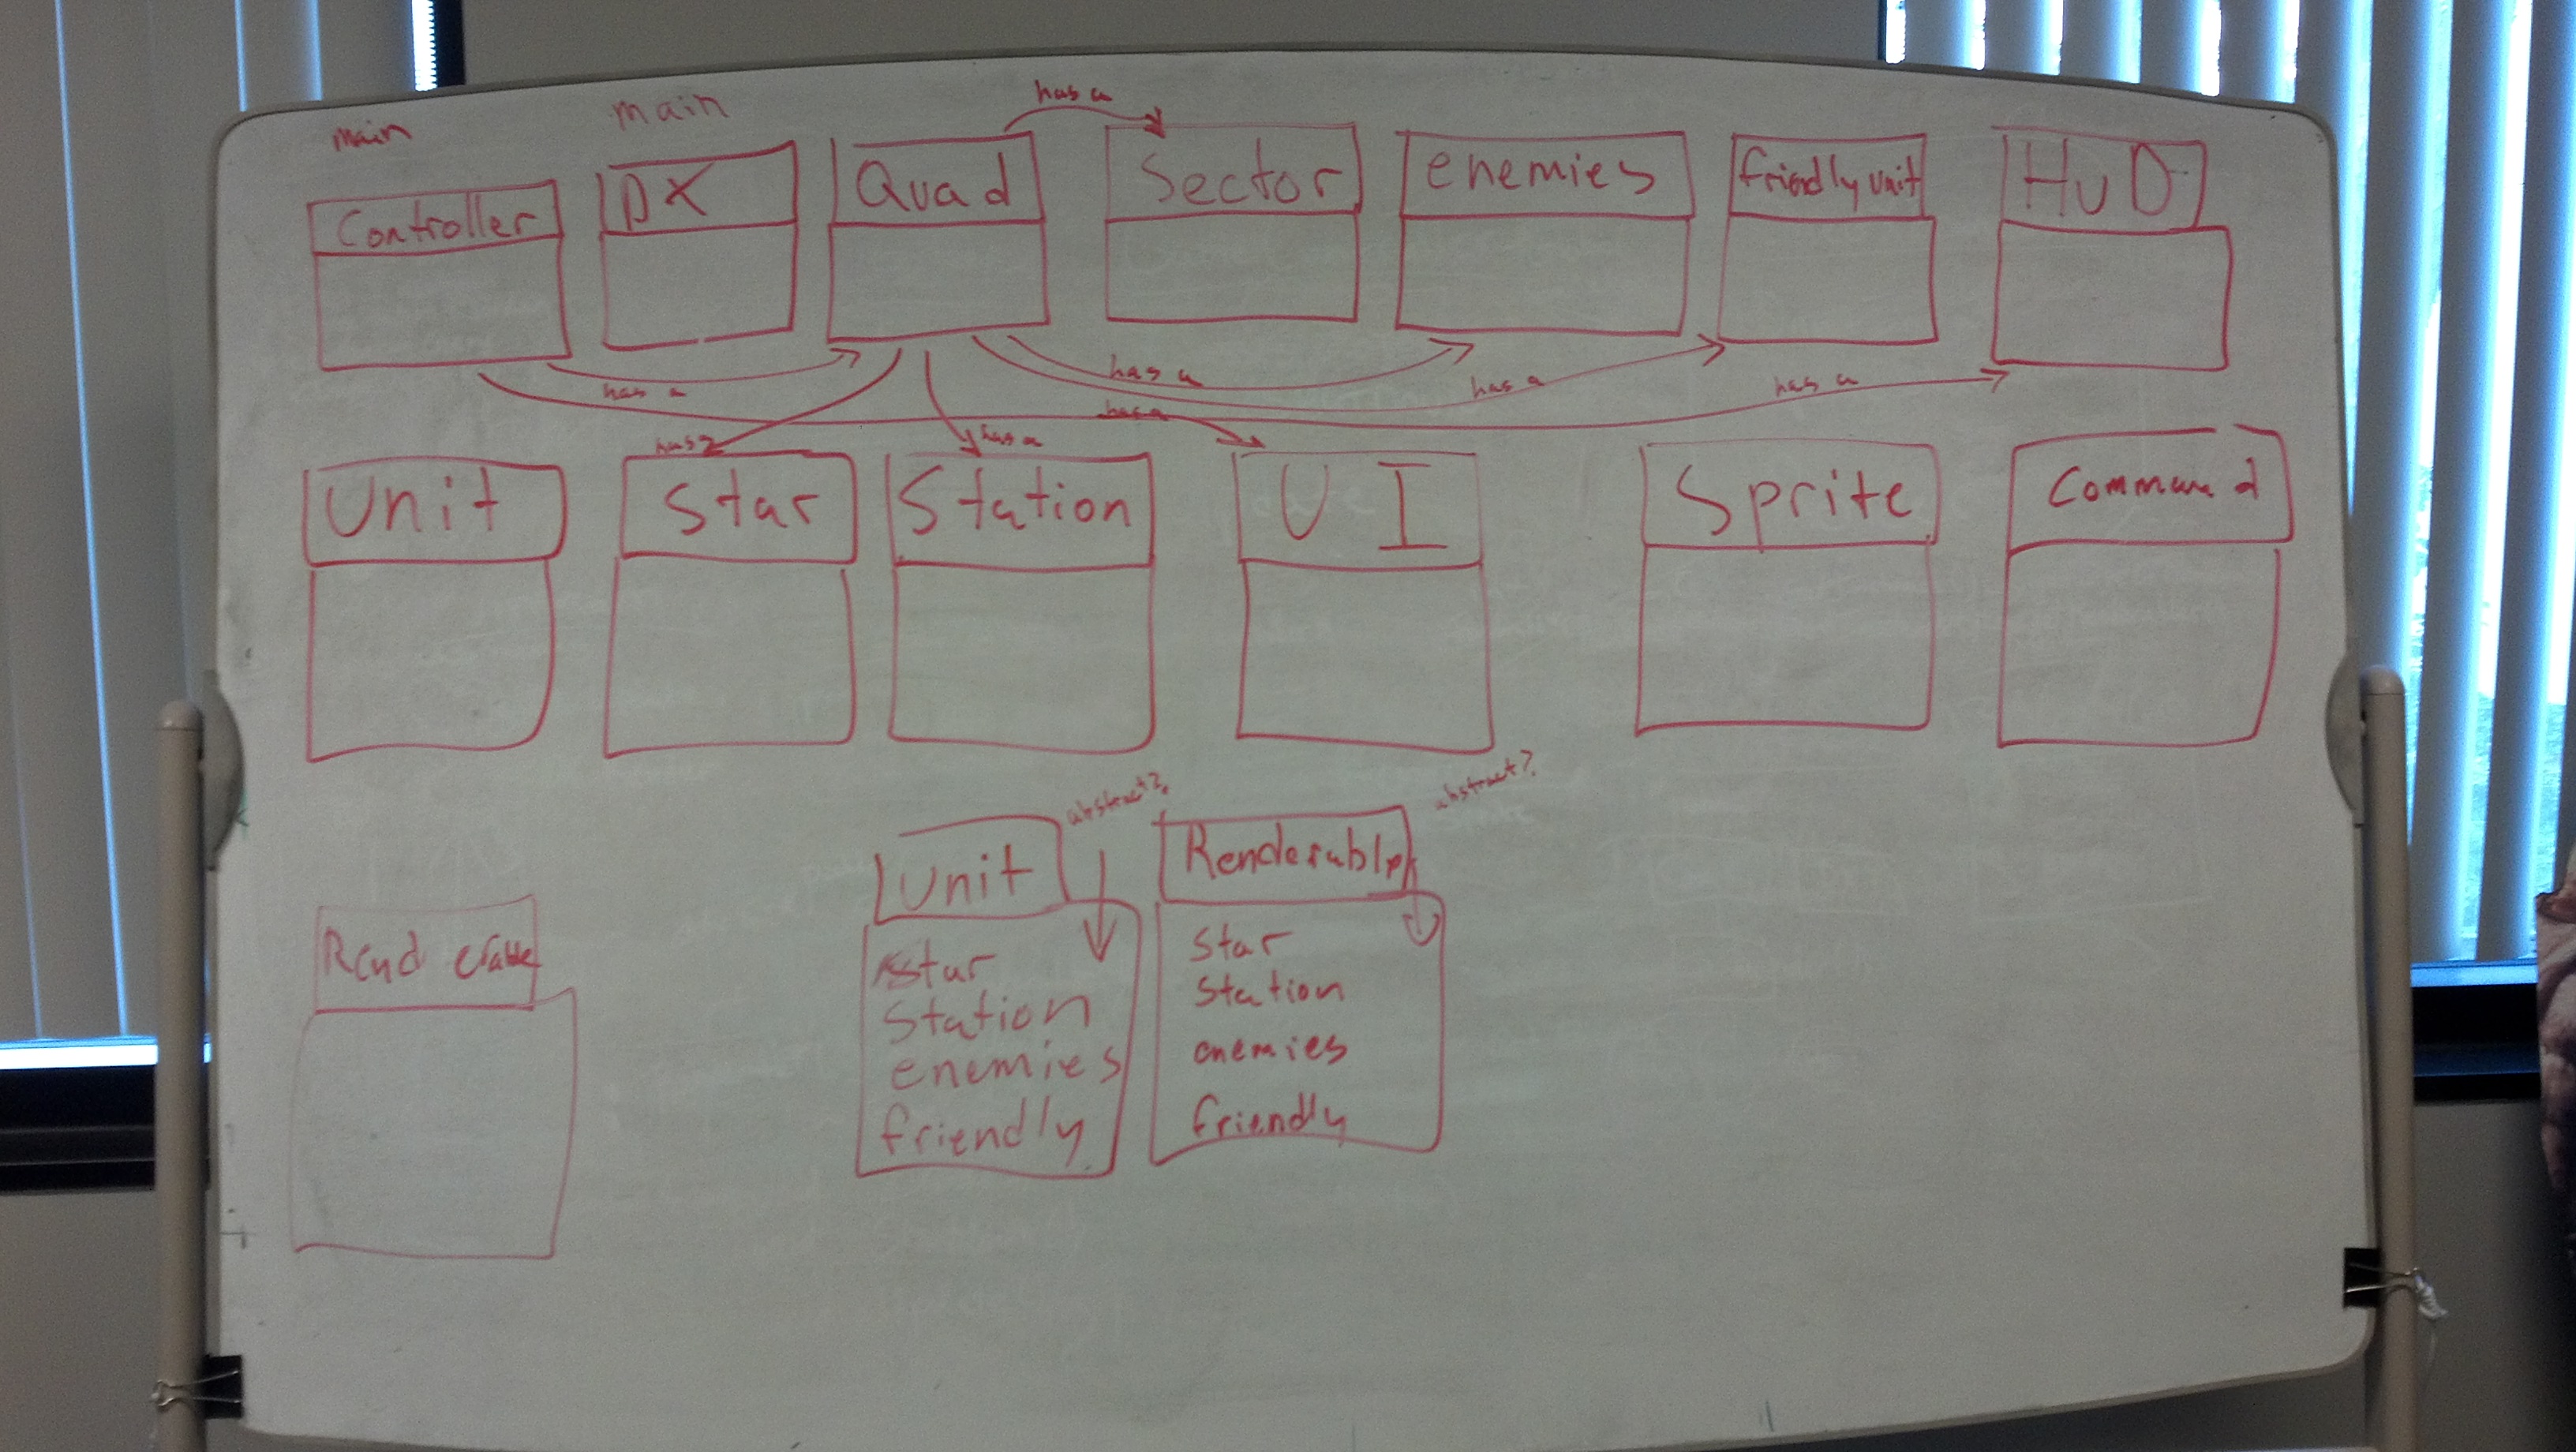 main
main
has a
Controller
DX
Quad
Sector
enemies
friendly unit
HUD
has a
has a
has a
has a
has a
has a
has a
Unit
Star
Station
UI
Sprite
Command
abstract?
abstract?
Unit
Renderable
star
station
enemies
friendly
star
station
enemies
friendly
Renderable